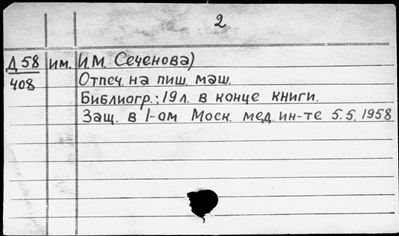 2
Д 58 им. И.М. Сеченова)
408 Отпеч. на пиш. маш.
Библиогр.: 19 л. в конце книги.
Защ. в 1-ом Моск. мед. ин-те 5.5.1958